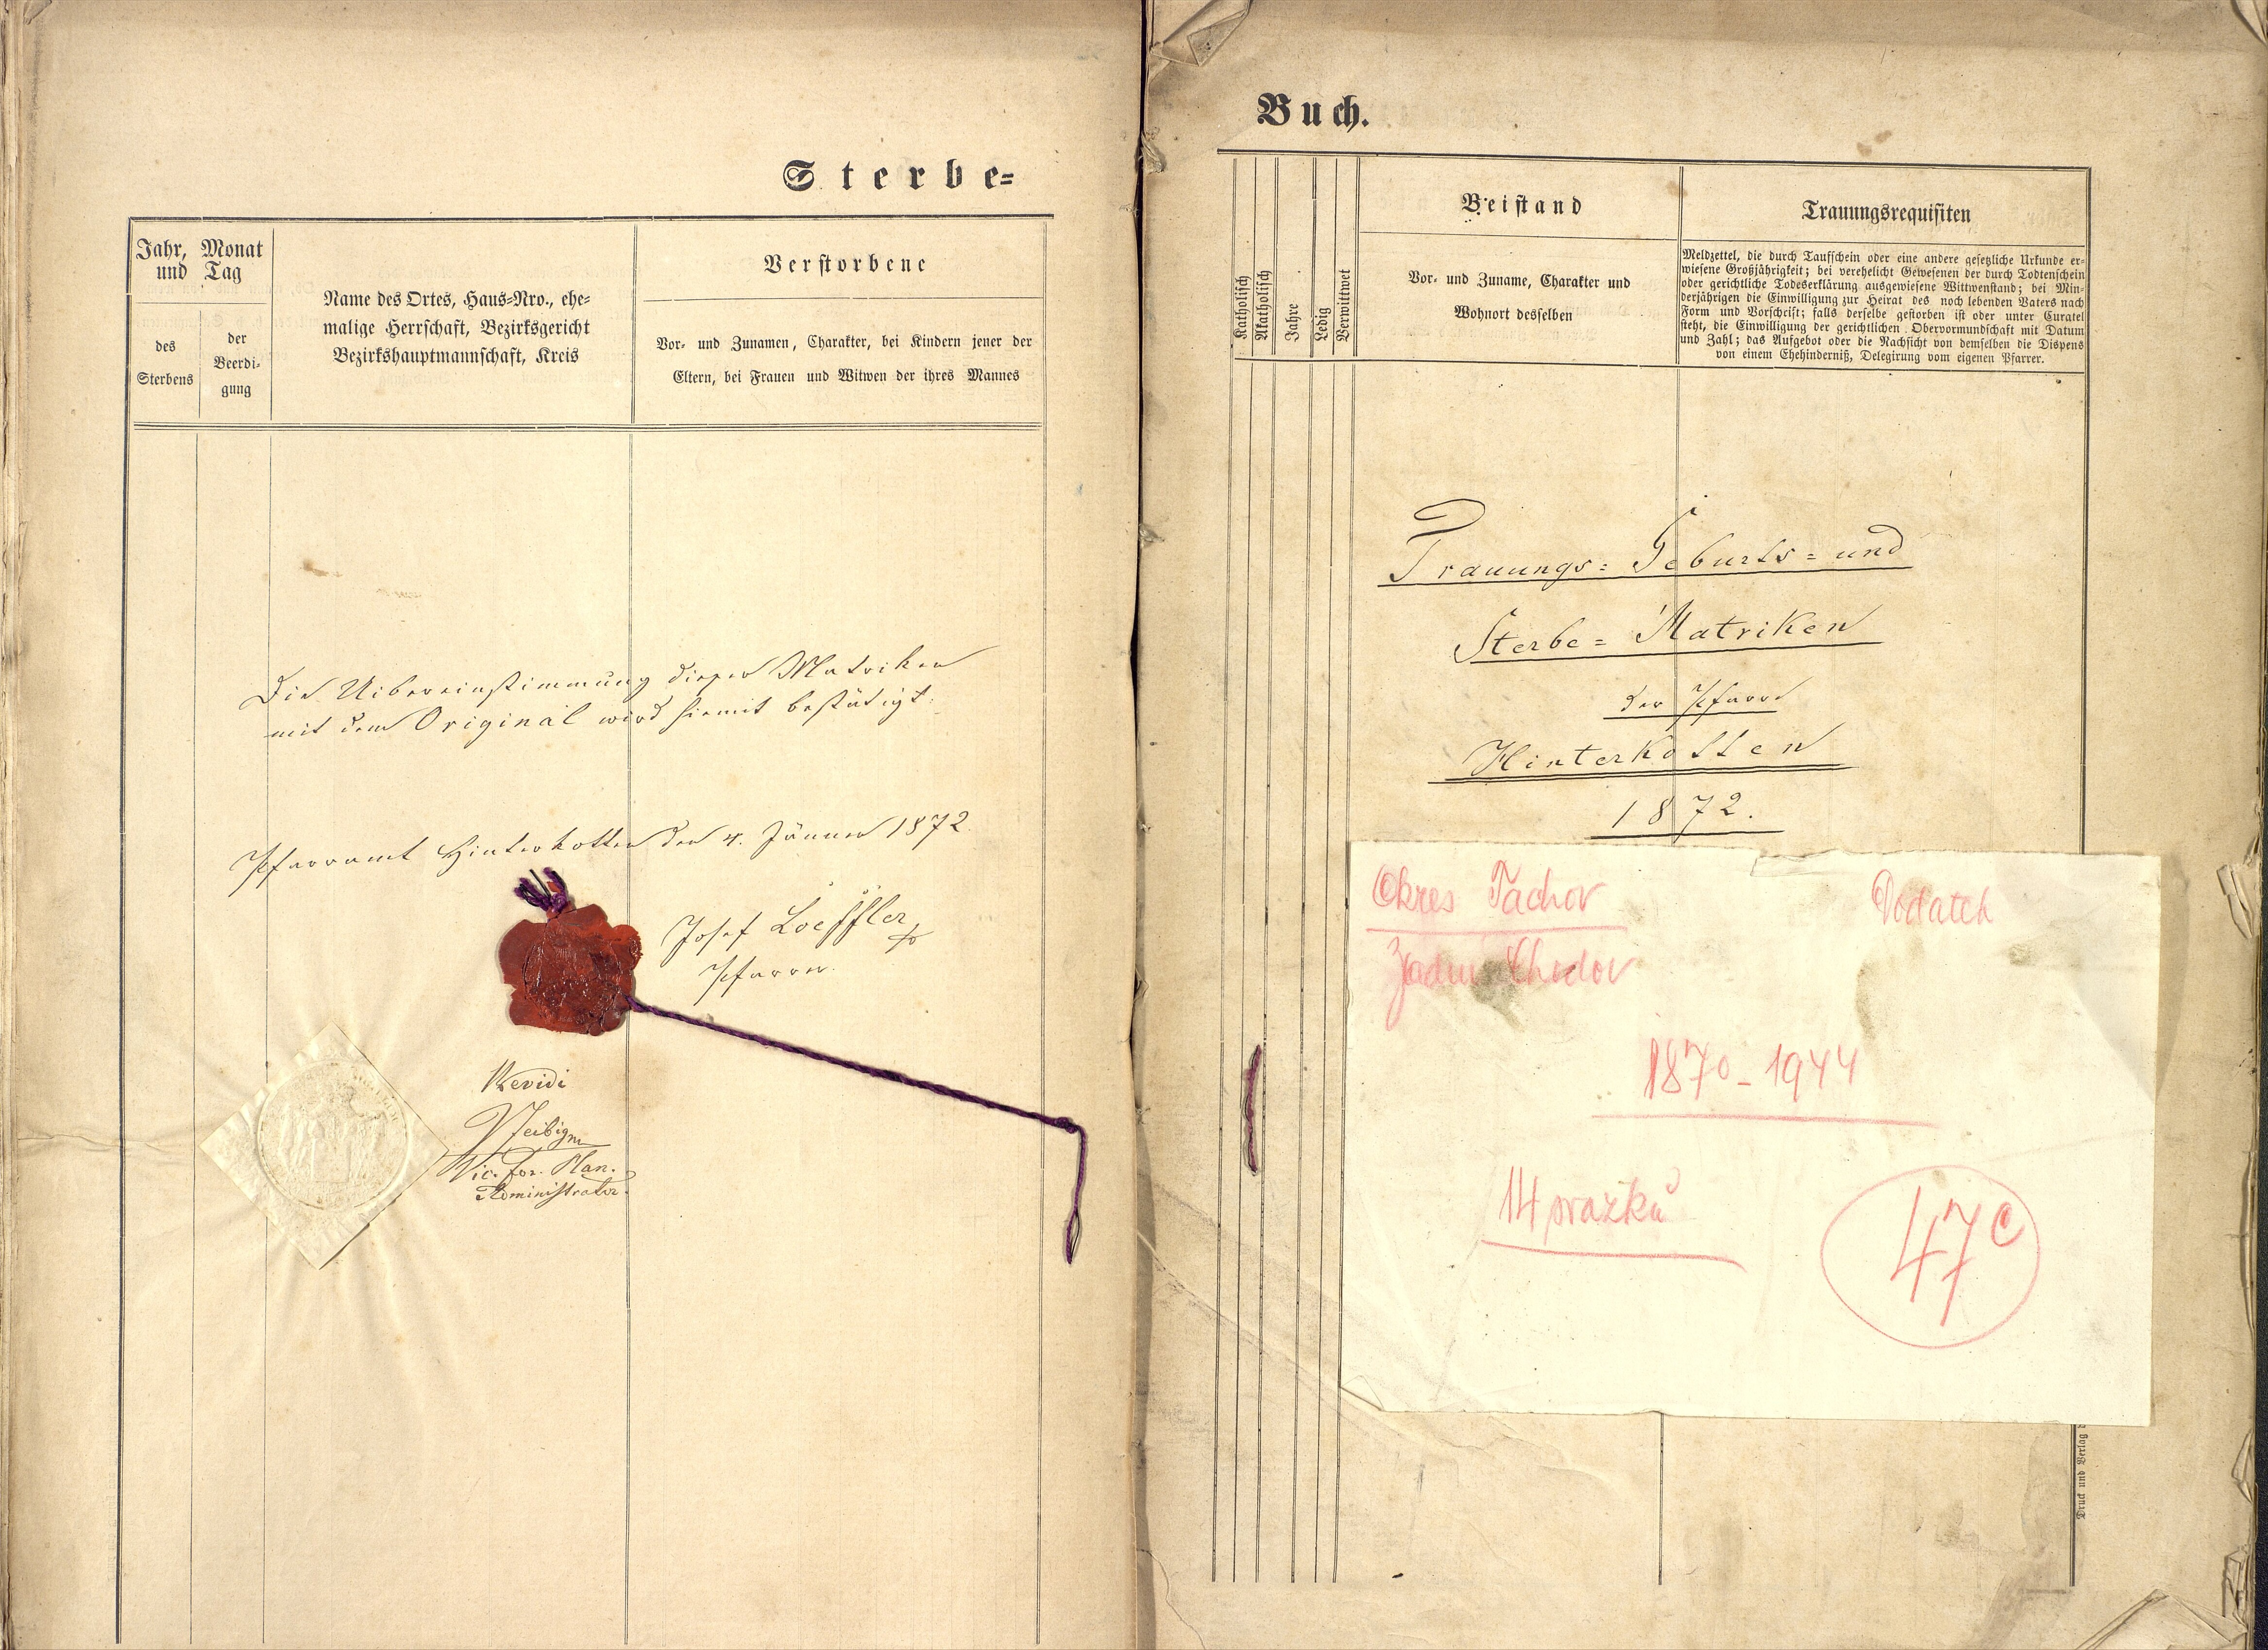 Sterbe=
Jahr, Monat
und Tag
des
Sterbens
der
Beerdi-
gung
Name des Ortes, Haus=Nro., ehe=
malige Herrschaft, Bezirksgericht
Bezirkshauptmannschaft, Kreis
Verstorbene
Vor- und Zunamen, Charakter, bei Kindern jener der
Eltern, bei Frauen und Witwen der ihres Mannes
Die Uibereinstimmung dieser Matriken
mit dem Original wird hiemit bestätigt.
Pfarramt Hinterkotten den 4. Jänner 1872
Josef Loeffler
Pfarrer.
Revidi
Vic. for. Plan.
Administrator.
Buch.
Katholisch
Akatholisch
Jahre
Ledig
Verwittwet
Beistand
Vor- und Zuname, Charakter und
Wohnort desselben
Trauungsrequisiten
Meldzettel, die durch Taufschein oder eine andere gesetzliche Urkunde er=
wiesene Großjährigkeit; bei verehelicht Gewesenen der durch Todtenschein
oder gerichtliche Todeserklärung ausgewiesene Wittwenstand; bei Min=
derjährigen die Einwilligung zur Heirat des noch lebenden Vaters nach
Form und Vorschrift; falls derselbe gestorben ist oder unter Curatel
steht, die Einwilligung der gerichtlichen Obervormundschaft mit Datum
und Zahl; das Aufgebot oder die Nachsicht von demselben die Dispens
von einem Ehehinderniß, Delegirung vom eigenen Pfarrer.
Trauungs= Geburts= und
Sterbe= Matriken
der Pfarre
Hinterkotten
1872.
Okres Tachov
Dodatek
Zadní Chodov
1870-1944
14 svazků
47c
Druck und Verlag